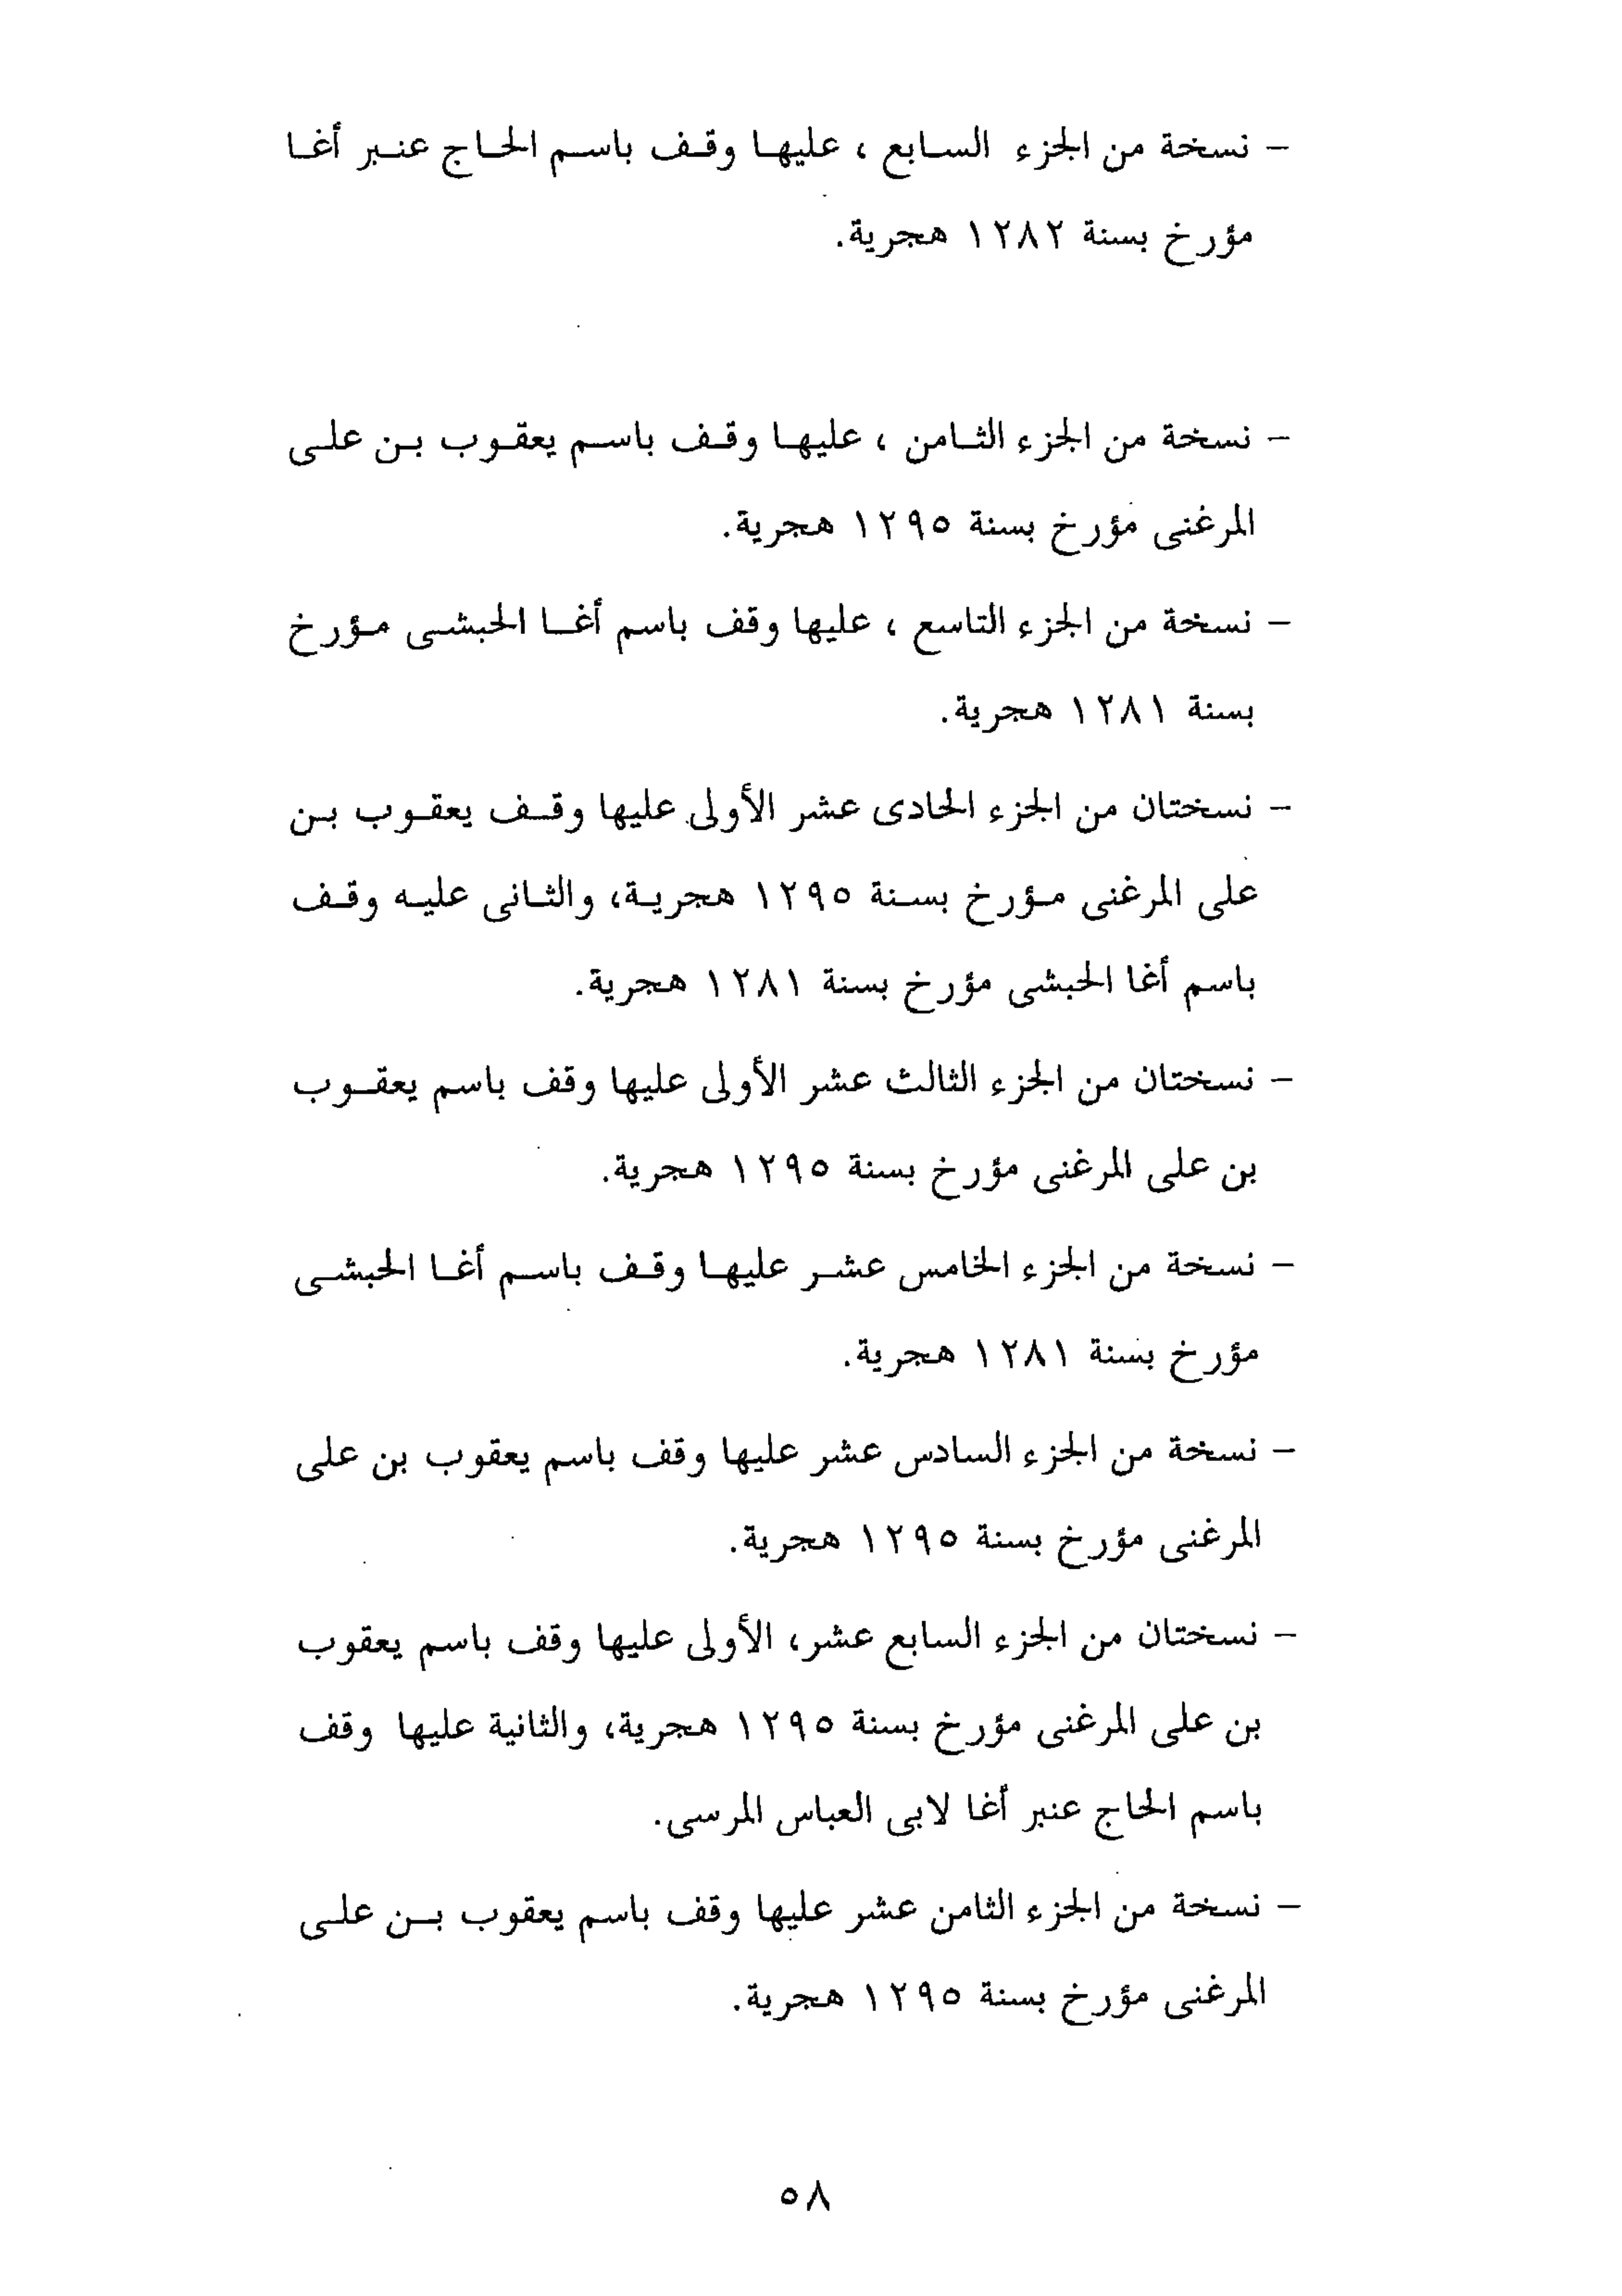 – نسخة من الجزء السابع ، عليها وقف باسم الحاج عنبر أغا
مؤرخ بسنة ١٢٨٢ هجرية.
– نسخة من الجزء الثامن ، عليها وقف باسم يعقوب بن على
المرغنى مؤرخ بسنة ١٢٩٥ هجرية.
– نسخة من الجزء التاسع ، عليها وقف باسم أغا الحبشى مؤرخ
بسنة ١٢٨١ هجرية.
– نسختان من الجزء الحادى عشر الأولى عليها وقف يعقوب بن
على المرغنى مؤرخ بسنة ١٢٩٥ هجرية، والثانى عليه وقف
باسم أغا الحبشى مؤرخ بسنة ١٢٨١ هجرية.
– نسختان من الجزء الثالث عشر الأولى عليها وقف باسم يعقوب
بن على المرغنى مؤرخ بسنة ١٢٩٥ هجرية.
– نسخة من الجزء الخامس عشر عليها وقف باسم أغا الحبشى
مؤرخ بسنة ١٢٨١ هجرية.
– نسخة من الجزء السادس عشر عليها وقف باسم يعقوب بن على
المرغنى مؤرخ بسنة ١٢٩٥ هجرية.
– نسختان من الجزء السابع عشر، الأولى عليها وقف باسم يعقوب
بن على المرغنى مؤرخ بسنة ١٢٩٥ هجرية، والثانية عليها وقف
باسم الحاج عنبر أغا لابى العباس المرسى.
– نسخة من الجزء الثامن عشر عليها وقف باسم يعقوب بن على
المرغنى مؤرخ بسنة ١٢٩٥ هجرية.
٥٨